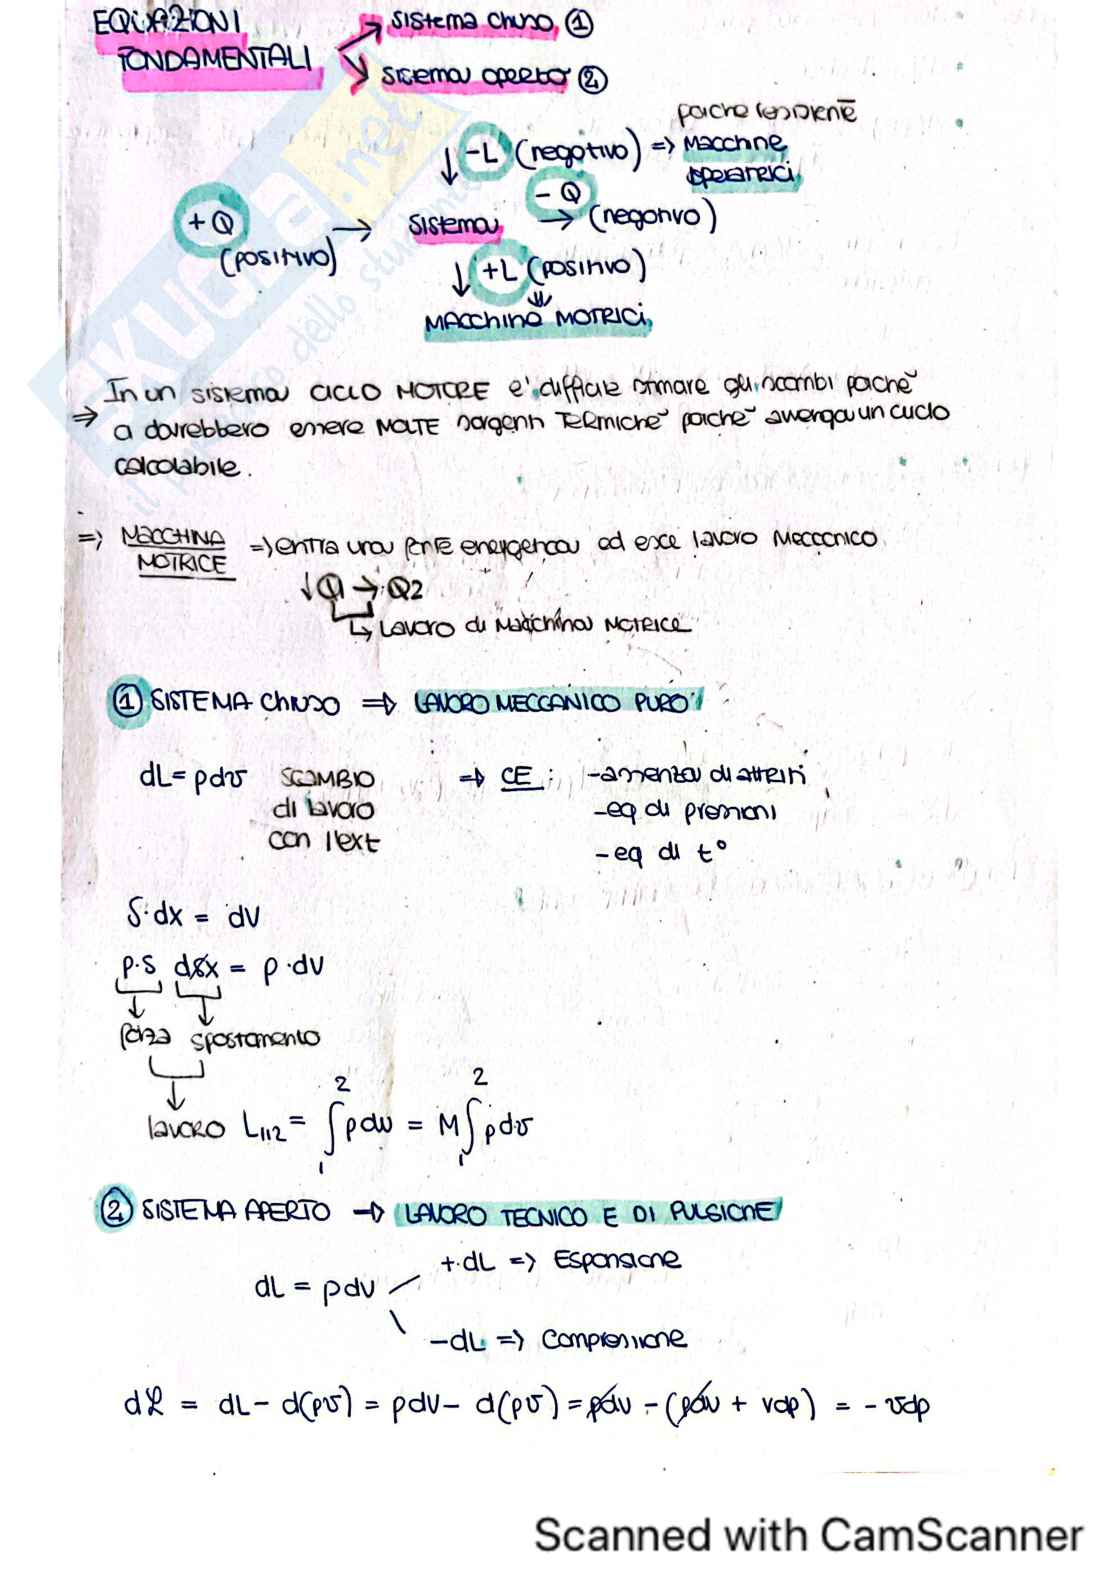 EQUAZIONI
FONDAMENTALI
Sistema chiuso ①
Sistema aperto ②
-L (negativo) => Macchine
operatrici
- Q
(negativo)
+ Q
(positivo)
→ Sistema →
+L (positivo)
MACCHINA MOTRICI
In un sistema CICLO MOTORE e' difficile stimare gli scambi poiche'
=> a dovrebbero essere MOLTE sorgenti TERMICHE poiche' avenga un ciclo
calcolabile.
=> MACCHINA
MOTRICE
=> entra una fonte energetica ed esce lavoro Meccanico
↓Q1 → Q2
↳ Lavoro di Macchina MOTRICE
① SISTEMA ChIUSO => LAVORO MECCANICO PURO
dL= pdv SCAMBIO
di lavoro
con l'ext
=> CE: -assenza di attriti
-eq di pressioni
-eq di t°
S·dx = dV
p·S dx = p·dV
forza spostamento
lavoro L112 = ∫ pdv = M∫ pdv
2
1
2
1
② SISTEMA APERTO → LAVORO TECNICO E DI PULSIONE
+dL => Espansione
dL = pdv
-dL => Compressione
dL = dL- d(pv) = pdV- d(pv) = pdv - (pdv + vdp) = - vdp
SKUOLA.net
il portico dello studente
Scanned with CamScanner